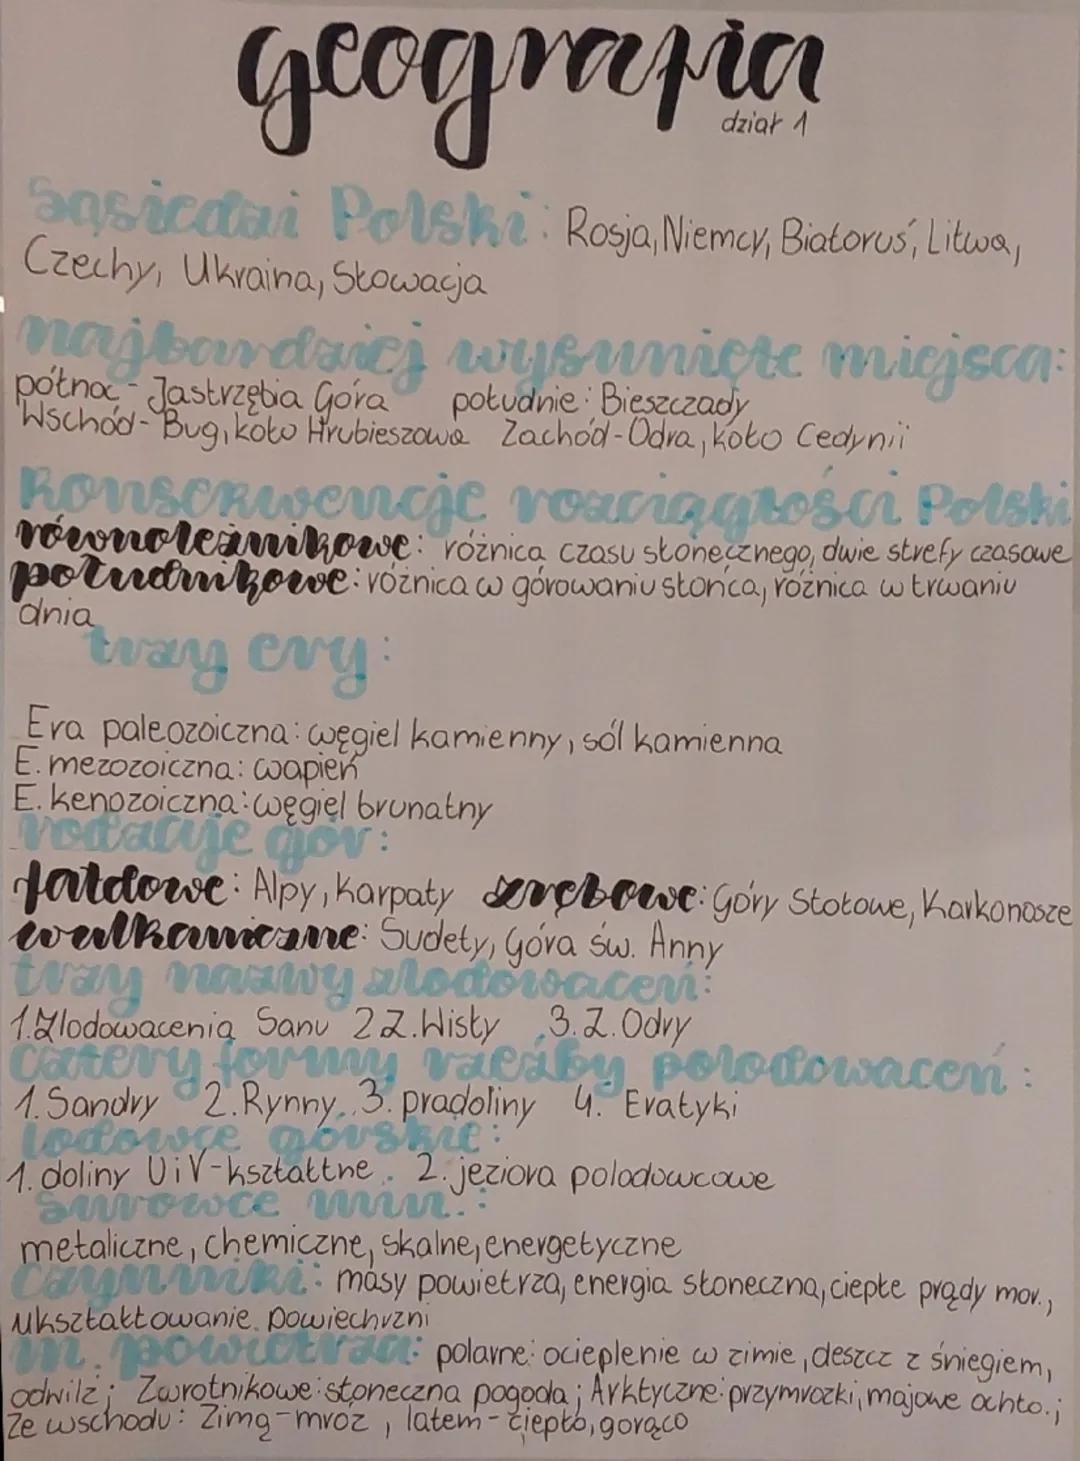 geografia
dział 1
Sąsiedzi Polski: Rosja, Niemcy, Białoruś, Litwa,
Czechy, Ukraina, Słowacja
najbardziej wysunięte miejsca:
północ - Jastrzębia Góra południe: Bieszczady
Wschód - Bug, koło Hrubieszowa Zachód - Odra, koło Cedynii
Konsekwencje rozciągłości Polski
równoleżnikowe: różnica czasu słonecznego, dwie strefy czasowe
południkowe: różnica w górowaniu słońca, różnica w trwaniu
dnia
trzy ery:
Era paleozoiczna: węgiel kamienny, sól kamienna
E. mezozoiczna: wapień
E. kenozoiczna: węgiel brunatny
rodzaje gór:
fałdowe: Alpy, Karpaty zrębowe: Góry Stołowe, Karkonosze
wulkaniczne: Sudety, Góra św. Anny
trzy nazwy zlodowaceń:
1. Zlodowacenia Sanu 2 Z. Wisły 3. Z. Odry
cztery formy rzeźby polodowaceń:
1. Sandry 2. Rynny 3. pradoliny 4. Eratyki
lodowce górskie:
1. doliny U i V-kształtne. 2. jeziora polodowcowe
Surowce min.:
metaliczne, chemiczne, skalne, energetyczne
Czynniki: masy powietrza, energia słoneczna, ciepłe prądy mor.,
ukształtowanie powiechrzni
m. powietrza: polarne: ocieplenie w zimie, deszcz z śniegiem,
odwilż; Zwrotnikowe: słoneczna pogoda; Arktyczne: przymrozki, majowe ochło.;
Ze wschodu: Zimą - mróz, latem - ciepło, gorąco